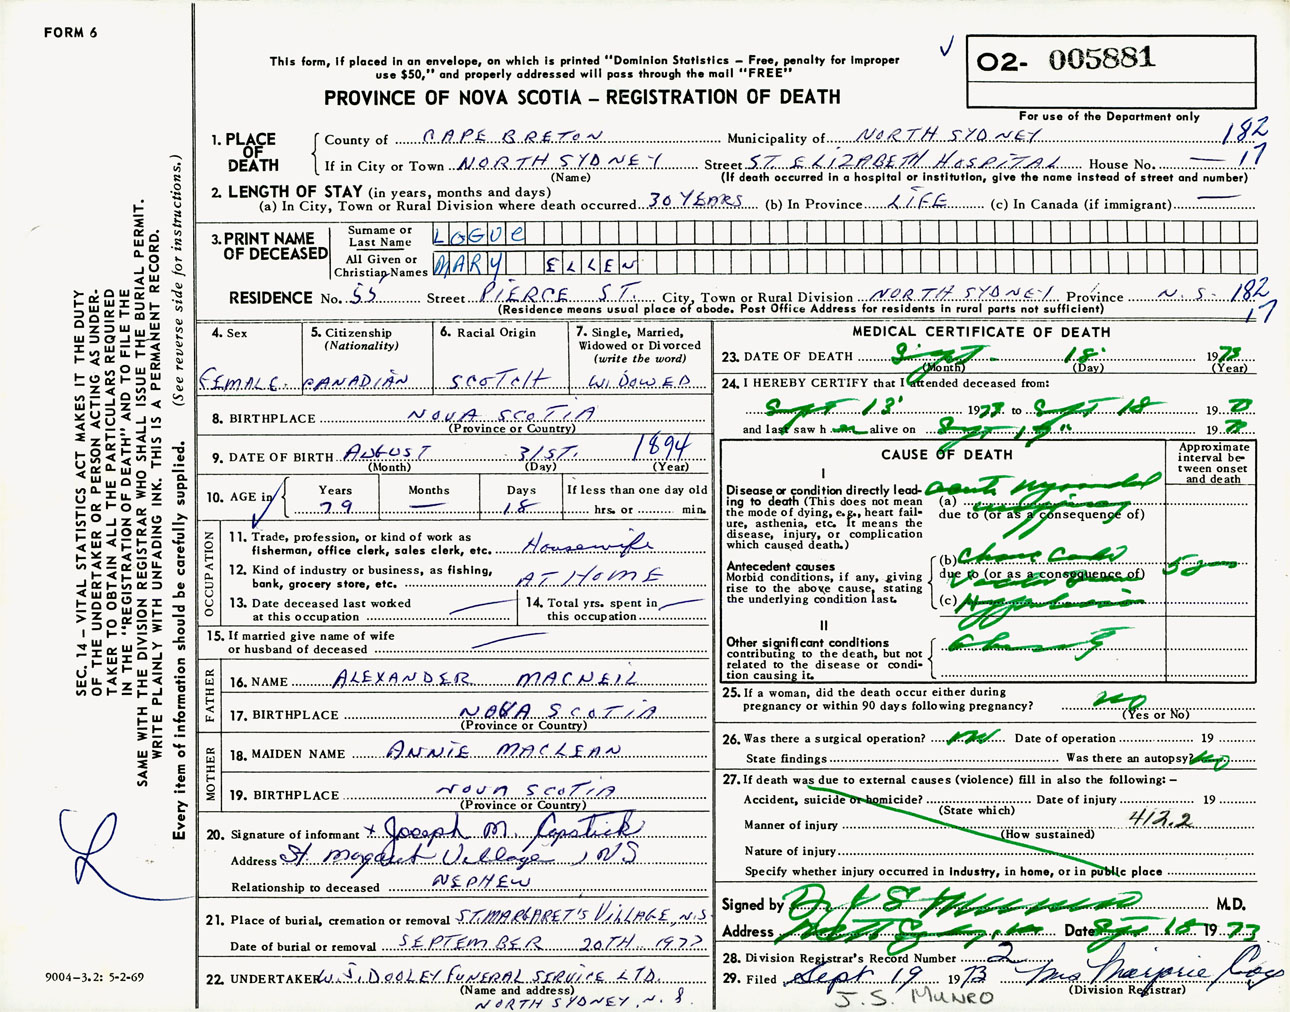 FORM 6
This form, if placed in an envelope, on which is printed "Dominion Statistics – Free, penalty for improper
use $50," and properly addressed will pass through the mail "FREE"
PROVINCE OF NOVA SCOTIA – REGISTRATION OF DEATH
O2- 005881
For use of the Department only
1. PLACE OF DEATH
County of CAPE BRETON Municipality of NORTH SYDNEY 182
If in City or Town NORTH SYDNEY Street ST. ELIZABETH HOSPITAL House No. — 17
(Name) (If death occurred in a hospital or institution, give the name instead of street and number)
2. LENGTH OF STAY (in years, months and days)
(a) In City, Town or Rural Division where death occurred 30 YEARS (b) In Province LIFE (c) In Canada (if immigrant) —
3. PRINT NAME OF DECEASED
Surname or Last Name LOGUE
All Given or Christian Names MARY ELLEN
RESIDENCE No. 55 Street PIERCE ST. City, Town or Rural Division NORTH SYDNEY Province N.S. 182
(Residence means usual place of abode. Post Office Address for residents in rural parts not sufficient) 17
4. Sex FEMALE
5. Citizenship (Nationality) CANADIAN
6. Racial Origin SCOTCH
7. Single, Married, Widowed or Divorced (write the word) WIDOWED
8. BIRTHPLACE NOVA SCOTIA
(Province or Country)
9. DATE OF BIRTH AUGUST 31ST. 1894
(Month) (Day) (Year)
10. AGE in Years Months Days If less than one day old
79 — 18 hrs. or min.
OCCUPATION
11. Trade, profession, or kind of work as
fisherman, office clerk, sales clerk, etc. Housewife
12. Kind of industry or business, as fishing,
bank, grocery store, etc. AT HOME
13. Date deceased last worked
at this occupation —
14. Total yrs. spent in
this occupation —
15. If married give name of wife
or husband of deceased —
FATHER
16. NAME ALEXANDER MACNEIL
17. BIRTHPLACE NOVA SCOTIA
(Province or Country)
MOTHER
18. MAIDEN NAME ANNIE MACLEAN
19. BIRTHPLACE NOVA SCOTIA
(Province or Country)
20. Signature of informant x Joseph M. Capstick
Address St. Margaret Village, NS
Relationship to deceased NEPHEW
21. Place of burial, cremation or removal ST. MARGARET'S VILLAGE, N.S.
Date of burial or removal SEPTEMBER 20TH 1973
22. UNDERTAKER W. J. DOOLEY FUNERAL SERVICE LTD.
(Name and address)
NORTH SYDNEY, N.S.
MEDICAL CERTIFICATE OF DEATH
23. DATE OF DEATH Sept. 18 1973
(Month) (Day) (Year)
24. I HEREBY CERTIFY that I attended deceased from:
Sept 13 1973 to Sept 18 1973
and last saw h alive on Sept 1973
CAUSE OF DEATH
Approximate interval between onset and death
I
Disease or condition directly leading to death (This does not mean
the mode of dying, e.g., heart failure, asthenia, etc. It means the
disease, injury, or complication
which caused death.)
(a) acute myocardial
due to (or as a consequence of)
Antecedent causes
Morbid conditions, if any, giving
rise to the above cause, stating
the underlying condition last.
(b) 5 years
due to (or as a consequence of)
(c) Hypertension
II
Other significant conditions
contributing to the death, but not
related to the disease or condition causing it.
25. If a woman, did the death occur either during
pregnancy or within 90 days following pregnancy? no
(Yes or No)
26. Was there a surgical operation? no Date of operation 19
State findings Was there an autopsy? no
27. If death was due to external causes (violence) fill in also the following: –
Accident, suicide or homicide? Date of injury 19
(State which)
Manner of injury 412.2
(How sustained)
Nature of injury
Specify whether injury occurred in industry, in home, or in public place
Signed by Dr. M.D.
Address Date Sept 18 1973
28. Division Registrar's Record Number 2
29. Filed Sept 19 1973 Mrs Marjorie
(Division Registrar)
J. S. MUNRO
SEC. 14 – VITAL STATISTICS ACT MAKES IT THE DUTY
OF THE UNDERTAKER OR PERSON ACTING AS UNDER-
TAKER TO OBTAIN ALL THE PARTICULARS REQUIRED
IN THE "REGISTRATION OF DEATH" AND TO FILE THE
SAME WITH THE DIVISION REGISTRAR WHO SHALL ISSUE THE BURIAL PERMIT.
WRITE PLAINLY WITH UNFADING INK. THIS IS A PERMANENT RECORD.
Every item of information should be carefully supplied. (See reverse side for instructions.)
9004-3.2: 5-2-69